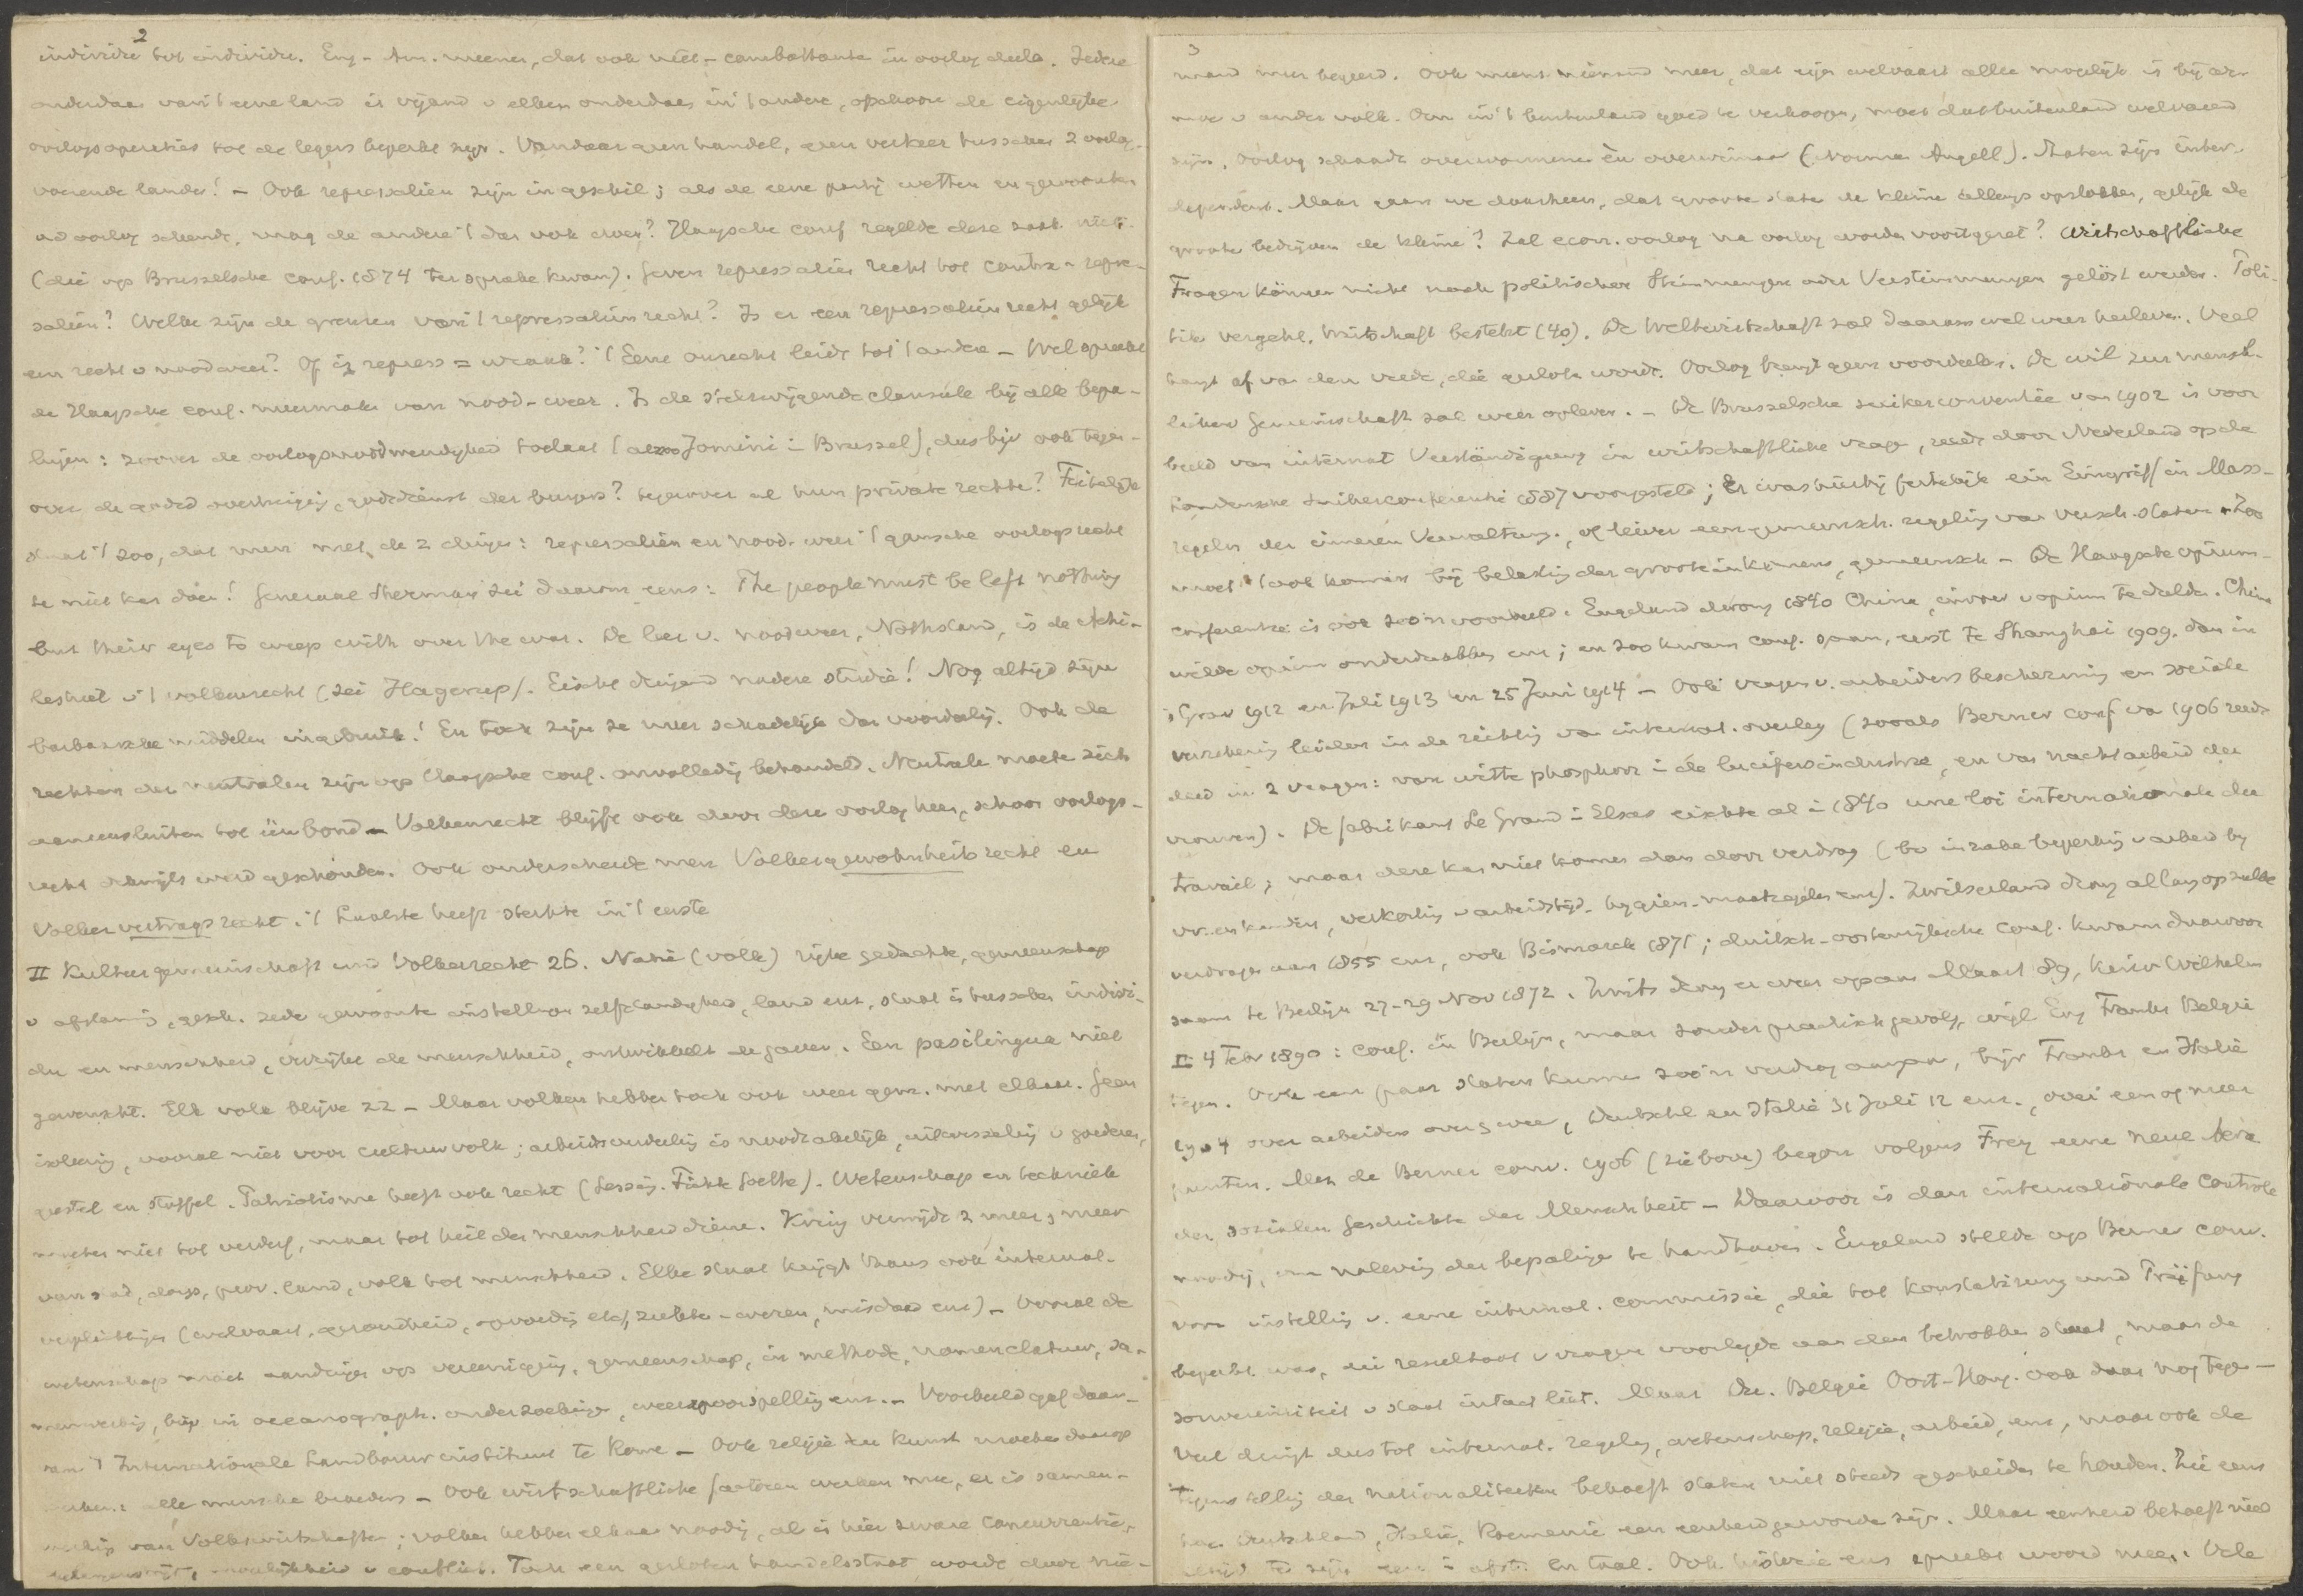 2
individu tot individu. Eng-Am. meenen, dat ook niet-combattante in oorlog deelen. Iedere
onderdaan van 't eene land is vijand v elken onderdaan in 't andere, ofschoon de eigenlijke
oorlogsoperaties tot de legers beperkt zijn. Vandaar geen handel, geen verkeer tusschen 2 oorlog-
voerende landen! – Ook represalien zijn in geschil; als de eene partij wetten en gewoonten
vd oorlog schendt, mag de andere 't dan ook doen? Haagsche conf regelde deze zaak niet
(die op Brusselsche conf. 1874 ter sprake kwam). Geven represalien recht tot contra-repre-
salien? Welke zijn de grenzen van 't represalienrecht? Is er een represalienrecht gelijk
een recht v noodweer? Of is repress = wraak? 't Eene onrecht leidt tot 't andere – Wel spreekt
de Haagsche conf. meermalen van nood-weer. Is de stilzwijgende clausule bij alle bepa-
lingen: zoover de oorlogsnoodwendigheid toelaat (alzoo Jomini i Brussel), dus bijv ook tegen-
over de godsd overtuiging, godsdienst der burgers? tegenover al hun private rechten? Feitelijk
staat 't zoo, dat men met de 2 dingen: represalien en nood-weer 't gansche oorlogsrecht
te niet kan doen! Generaal Sherman zei daarom eens: The people must be left nothing
but their eyes to weep with over the war. De leer v. noodweer, Nothstand, is de Achi-
leshiel v 't volkenrecht (zei Hagerup). Eischt dringend nadere studie! Nog altijd zijn
barbaarsche middelen in gebruik! En toch zijn ze meer schadelijk dan voordeelig. Ook de
rechten der neutralen zijn op Haagsche conf. onvolledig behandeld. Neutrale moeten zich
aaneensluiten tot één bond – Volkenrecht blijft ook door deze oorlog heen, schoon oorlogs-
recht dikwijls werd geschonden. Ook onderscheide men Volkergewohnheitsrecht en
Volkervertragsrecht. 't Laatste heeft sterkte in 't eerste
II Kulturgemeinschaft und Volkerrecht 26. Natie (volk) rijke gedachte, gemeenschap
v afstamming, gesch. zede gewoonte instelling zelfstandigheid, land enz, staat is tusschen indivi-
du en menschheid, verrijkt de menschheid, ontwikkelt de gaven. Een pasilingua niet
gewenscht. Elk volk blijve zz – Maar volken hebben toch ook weer gem. met elkaar. Geen
isolering, vooral niet voor cultuurvolk; arbeidsverdeeling is noodzakelijk, uitwisseling v goederen,
geestel en stoffel. Patriotisme heeft ook recht (Lessing. Fichte Goethe). Wetenschap en techniek
moeten niet tot verderf, maar tot heil der menschheid dienen. Kring verwijdt z meer & meer
van stad, dorp, prov. land, volk tot menschheid. Elke staat krijgt thans ook internat.
verplichtingen (welvaart, gezondheid, opvoeding etc, ziekte-weren, misdaad enz) – Vooral de
wetenschap moet aandringen op vereeniging, gemeenschap, in methode, nomenclatuur, sa-
menwerking, bijv in oceanograph. onderzoekingen, weervoorspelling enz. – Voorbeeld gaf daar-
van 't Internationale Landbouw instituut te Rome – Ook religie en kunst moeten daarop
werken: alle menschen broeders – Ook wirtschaftliche factoren werken mee, er is samen-
van Volkswirtschaften; volken hebben elkaar noodig, al is hier zware concurrentie,
mogelijkheid v conflict. Toch een gesloten handelsstaat wordt door nie-
3
mand meer begeerd. Ook meent niemand meer, dat eigen welvaart alleen mogelijk is bij ar-
moe v ander volk. Om in 't buitenland goed te verkoopen, moet dat buitenland welvarend
zijn. Oorlog schaadt overwonnene èn overwinnaar (Norman Angell). Staten zijn inter-
dependent. Maar gaan we daarheen, dat groote staten de kleine allengs opslokken, gelijk de
groote bedrijven de kleine? Zal econ. oorlog na oorlog worden voortgezet? Wirtschaftliche
Fragen können nicht nach politischen Stimmungen oder Verstimmungen gelöst werden. Poli-
tik vergeht, Wirtschaft besteht (40). De Weltwirtschaft zal daarom wel weer herleven. Veel
hangt af van den vrede, die gesloten wordt. Oorlog brengt geen voordeelen. De wil zur mensch-
lichen Gemeinschaft zal weer opleven. – De Brusselsche suikerconventie van 1902 is voor
beeld van internat Verständigung in wirtschaftliche vragen, reeds door Nederland op de
Londensche Suikerconferentie 1887 voorgesteld; Er was hierbij feitelijk ein Eingriff in Mass-
regeln der inneren Verwaltung, of liever een gemeensch. regeling van versch. staten – Zoo
moet 't ook komen bij belasting der groote inkomens, gemeensch – De Haagsche opium-
conferentie is ook zoo'n voorbeeld. Engeland dwong 1840 China, invoer v opium te dulden. China
wilde opium onderdrukken enz; en zoo kwam conf. saam, eerst te Shanghai 1909, dan in
's Grav 1912 en Juli 1913 en 25 Juni 1914 – Ook vragen v. arbeidersbescherming en sociale
verzekering leiden in de richting van internat. overleg (zooals Berner conf van 1906 reeds
deed in 2 vragen: van witte phosphor i de lucifersindustrie, en van nachtarbeid der
vrouwen). De fabrikant Le Grand i Elzas eischte al i 1840 une loi internationale du
travail; maar deze kan niet komen dan door verdrag (bv inzake beperking v arbeid bij
vr. en kinders, verkorting v arbeidstijd, hygien-maatregelen enz). Zwitserland drong al lang op zulke
verdragen aan 1855 enz, ook Bismarck 1871; duitsch-oostenrijksche conf. kwam daarvoor
saam te Berlijn 27-29 Nov 1872. Zwits drong er weer op aan Maart 89, Keizer Wilhelm
II 4 Febr 1890: conf. in Berlijn, maar zonder practisch gevolg, wijl Eng Frankr België
tegen. Ook een paar staten kunnen zoo'n verdrag aangaan, bijv Frankr en Italië
1904 over arbeiders over en weer, Deutschl en Italië 31 Juli 12 enz., over een of meer
punten. Met de Berner conv. 1906 (zie boven) begon volgens Frey eene neue Aera
der sozialen Geschichte der Menschheit – Daarvoor is dan internationale Controle
noodig, om naleving der bepalingen te handhaven. Engeland stelde op Berner conv.
voor instelling v. eene internat. commissie, die tot Konstatirung und Prüfung
beperkt was, die resultaat v vragen voorlegde aan den betrokken staat, maar de
souvereiniteit v staat intact liet. Maar Du. België Oost-Hong. ook daar nog tegen –
Veel dringt dus tot internat. regeling, wetenschap, religie, arbeid, enz, maar ook de
tegenstelling der nationaliteiten behoeft staten niet steeds gescheiden te houden. Zie eens
hoe Deutschland, Italië, Roemenië een eenheid geworden zijn. Maar eenheid behoeft niet
altijd te zijn een i afst. en taal. Ook historie enz spreekt woord mee. Vele